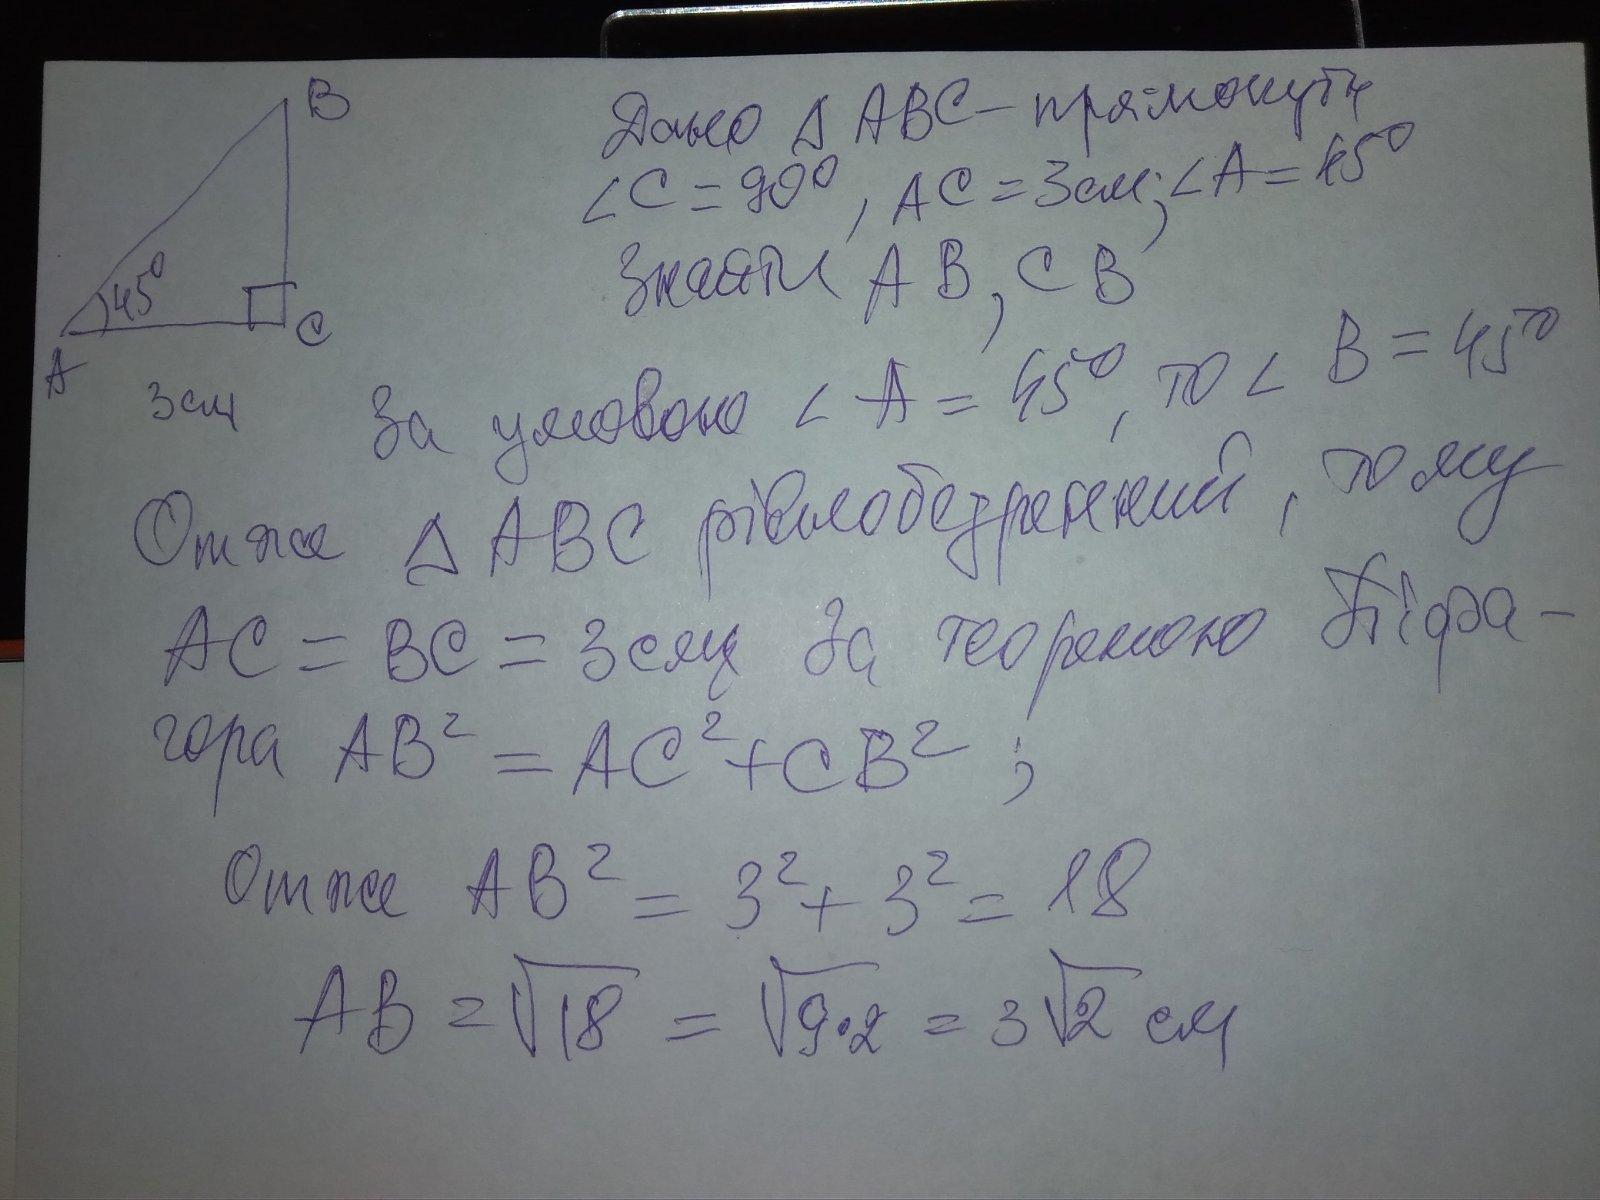 B
45°
A
C
3 см
Дано △ ABC - прямокутн
∠C = 90°, AC = 3 см; ∠A = 45°
Знайти AB, CB
За умовою ∠A = 45°, то ∠B = 45°
Отже △ ABC рівнобедренний, тому
AC = BC = 3 см За теоремою Піфа-
гора AB² = AC² + CB² ;
Отже AB² = 3² + 3² = 18
AB = √18 = √9·2 = 3√2 см